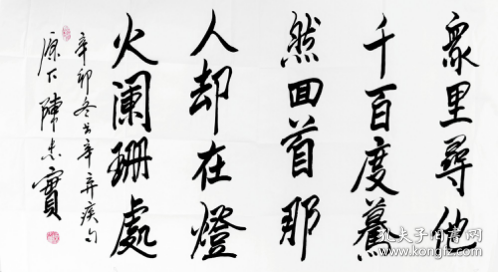 众里寻他
千百度蓦
然回首那
人却在燈
火阑珊處
辛卯冬书辛弃疾句
原下陳志實
孔夫子旧书网
www.kongfz.com